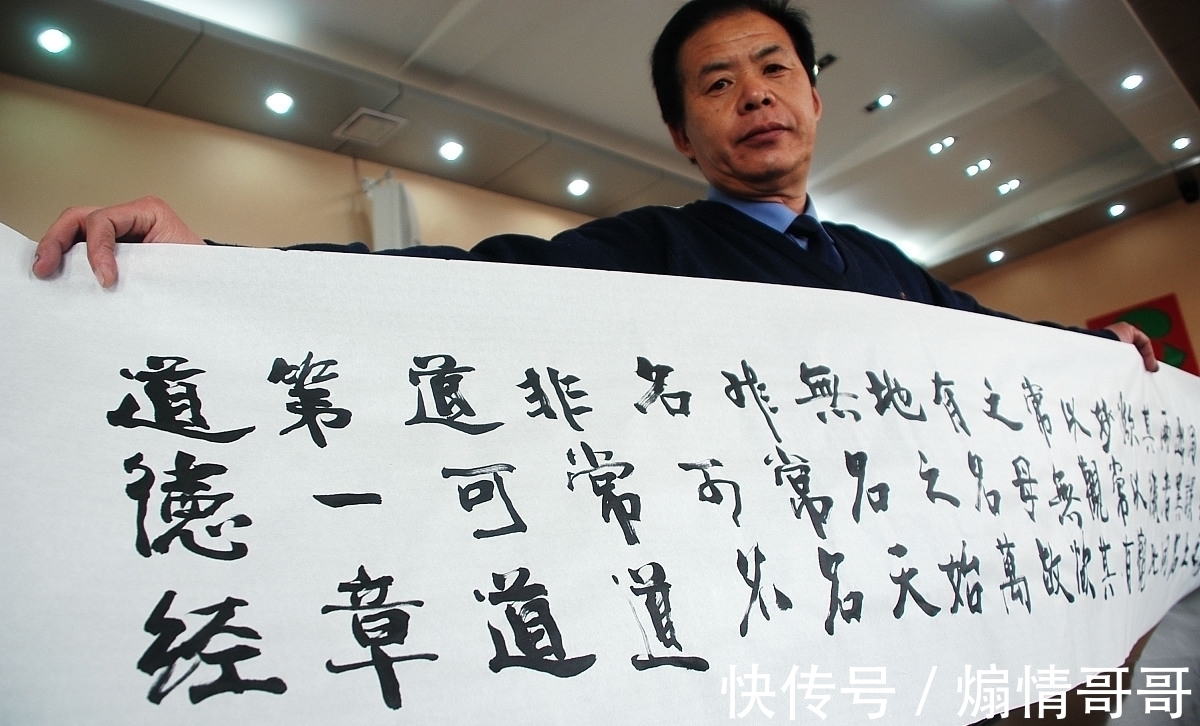 道德经
第一章
道可道
非常道
名可名
非常名
無名天
地之始
有名萬
之母故
常無欲
以觀其
妙常有
欲以觀
其徼此
兩者同
快传号 / 煽情哥哥